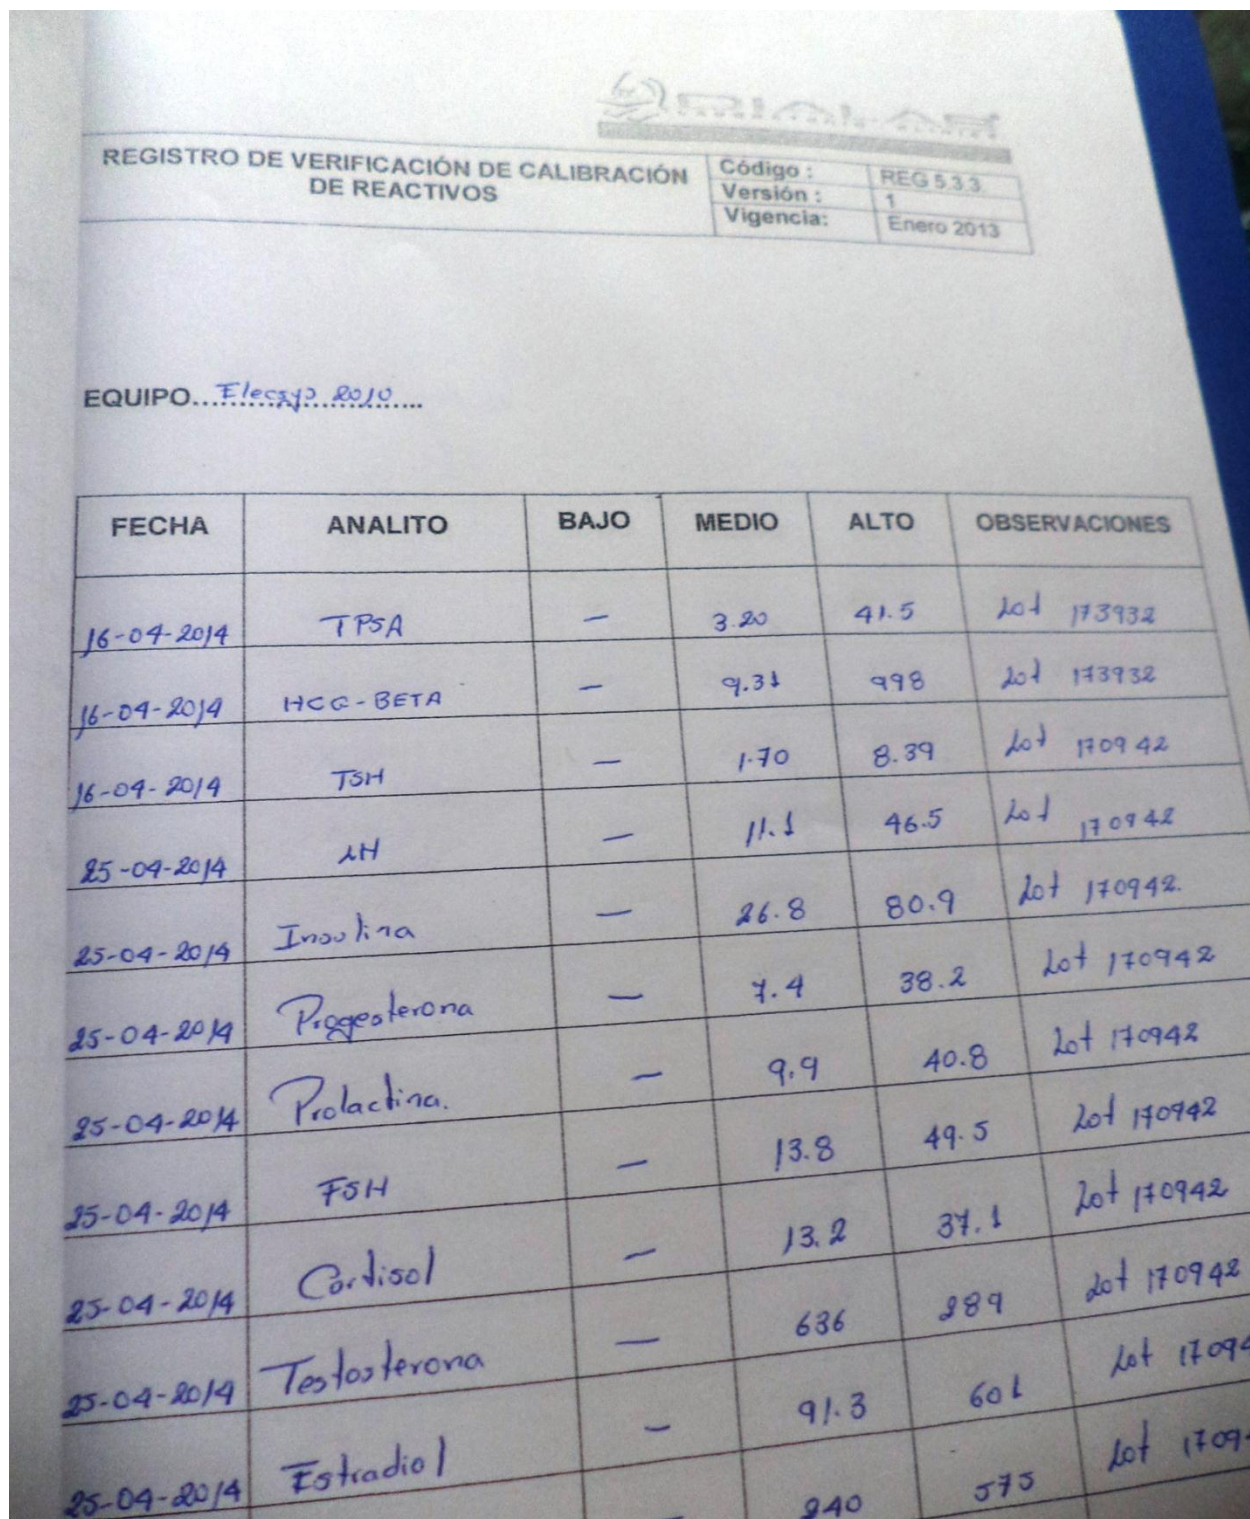 REGISTRO DE VERIFICACIÓN DE CALIBRACIÓN
DE REACTIVOS
Código : REG 5.3.3
Versión : 1
Vigencia: Enero 2013
EQUIPO...Elecsys 2010...
FECHA ANALITO BAJO MEDIO ALTO OBSERVACIONES
16-04-2014 TPSA — 3.20 41.5 Lot 173932
16-04-2014 HCG-BETA — 9.31 998 Lot 173932
16-04-2014 TSH — 1.70 8.39 Lot 170942
25-04-2014 LH — 11.1 46.5 Lot 170942
25-04-2014 Insulina — 26.8 80.9 Lot 170942.
25-04-2014 Progesterona — 7.4 38.2 Lot 170942
25-04-2014 Prolactina. — 9.9 40.8 Lot 170942
25-04-2014 FSH — 13.8 49.5 Lot 170942
25-04-2014 Cortisol — 13.2 37.1 Lot 170942
25-04-2014 Testosterona — 636 289 Lot 170942
25-04-2014 Estradiol — 91.3 601 Lot 17094
— 240 575 Lot 1709